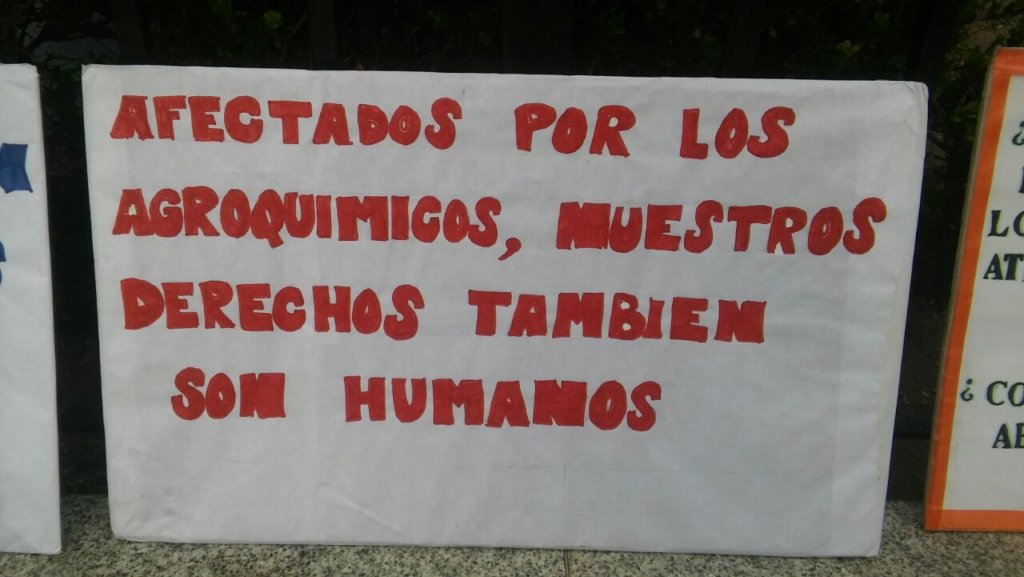 AFECTADOS POR LOS
AGROQUIMICOS, NUESTROS
DERECHOS TAMBIEN
SON HUMANOS